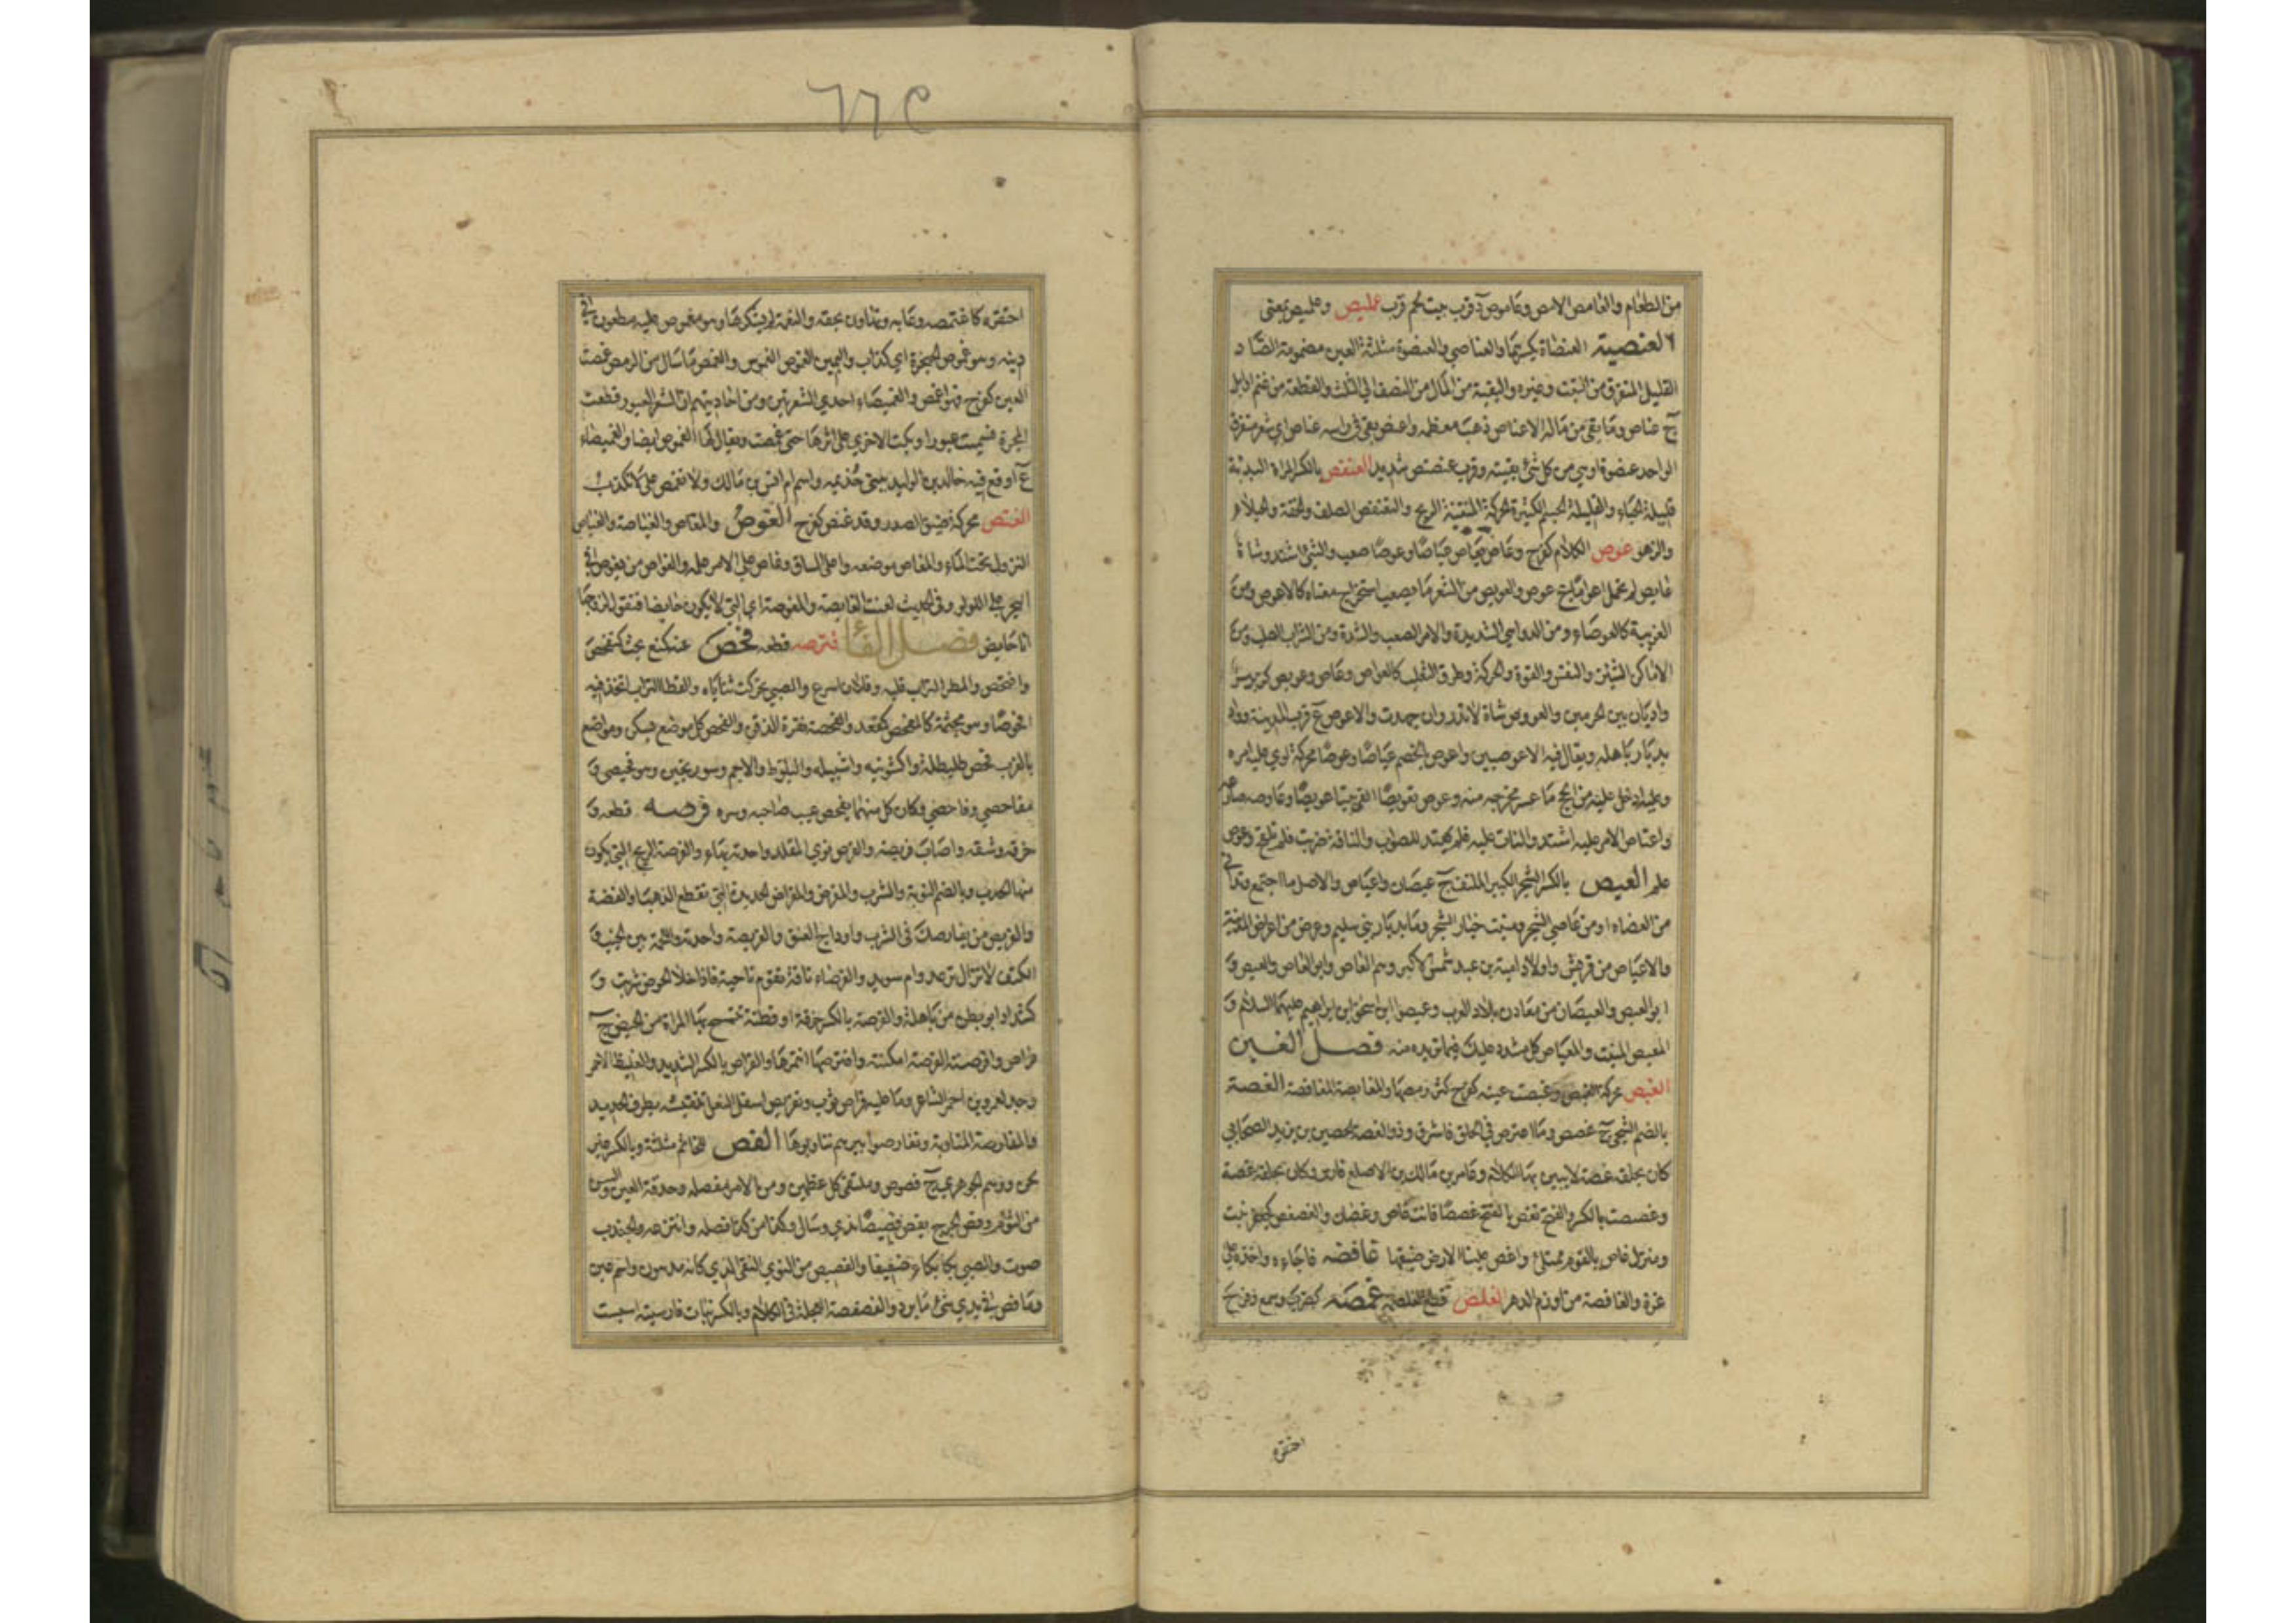 من الطعام والغامص الامص وعاموص د قرب بيت لحم قرب عمليص وعمليص بمعنى
العنصية العنصاة بكسرهما والعناصي والعنصوة مثلثة العين مضمومة الصاد
القليل المتفرق من النبت وغيره والبقية من المال من النصف الى الثلث والقطعة من غنم او ابل
ج عناص وما بقي من ماله الا عناص ذهب معظمه واعنص بقي في راسه عناص اي شعر متفرق
الواحد عنصوة او هي من كل شئ بقيته وقرب عنصنص شديد العنفص بالكسر المراة البذية
قليلة الحياء والقليلة الجسم الكثيرة الحركة المنتنة الريح والتعنفص الصلف والخفة والخيلاء
والزهو عوص الكلام كفرح وعاص يعاص عياصا وعوصا صعب والشئ اشتد وشاة
عايص لم تحمل اعواما ج عوص والعويص من الشعر ما يصعب استخراج معناه كالاعوص ومن
الغريبة كالعوصاء ومن الدواهي الشديدة والامر الصعب والشدة ومن التراب الصلب ومن
الاماكن الشئز والنفس والقوة والحركة وطرق الثعلب كالعواص وعاص وعويص كزبير
واديان بين الحرمين والعووص شاة لا تدر وان جهدت والاعوص ع قرب المدينة وواد
بديار باهله ويقال فيه الاعوصين واعوص بالخصم عياصا وعوصا محركة لوي عليه امره
وعليه ادخل عليه من الحجج ما عسر مخرجه منه وعوص تعويصا القى بيتا عويصا وعاوصه صارعه
واعتاص الامر عليه اشتد والتاث عليه فلم يهتد للصواب والناقة ضربت فلم تلقح وعوص
علم العيص بالكسر الشجر الكثير الملتف ج عيصان واعياص والاصل وما اجتمع وتدانى
من العضاه او من عاصي الشجر ومنبت خيار الشجر وماء بديار بني سليم وعرض من اعراض المدينة
والاعياص من قريش اولاد امية بن عبد شمس الاكبر وهم العاص وابو العاص والعيص و
ابو العيص والعيصان من معادن بلاد العرب وعيصو ابن اسحق ابن ابراهيم عليهما السلام و
المعيص المنبت والمعياص كل متشدد عليك فيما تريده منه فصل الغين
الغبص محركة الغمص وغبصت عينه كفرح كثر رمصها والمغابصة المغافصة الغصة
بالضم الشجى ج غصص وما اعترض في الحلق فاشرق وذو الغصة الحصين بن يزيد الصحابي
كان بحلقه غصة لا يبين بها الكلام وعامر بن مالك بن الاصلع فارس وكان بحلقه غصة
وغصصت بالكسر والفتح تغص بالفتح غصصا فانت غاص وغصان والغصغص كجعفر نبت
ومنزل غاص بالقوم ممتلئ واغص علينا الارض ضيقها غافصه فاجاءه واخذه على
غرة والغافصة من اوازم الدهر الغلص قطع الغلصمة غمصه كضرب وسمع وفرح
احتقره
احتقره كاغتمصه وعابه وتهاون بحقه والنعمة لم يشكرها وهو مغموص عليه مطعون في
دينه وهو غموص الحنجرة اي كذاب واليمين الغموص الغموس والغمص ما سال من الرمص غمصت
العين كفرح فهو اغمص والغميصاء احدى الشعريين ومن احاديثهم ان الشعرى العبور قطعت
المجرة فسميت عبورا وبكت الاخرى على اثرها حتى غمصت ويقال لها الغموص ايضا والغميصاء
ع اوقع فيه خالد بن الوليد ببني جذيمه واسم ام انس بن مالك ولا تغمص علي لا تكذب
الغنص محركة ضيق الصدر وقد غنص كفرح الغوص والمغاص والغياصة والغياص
النزول تحت الماء والمغاص موضعه واعلى الساق وغاص على الامر علمه والغواص من يغوص في
البحر على اللؤلؤ وفي الحديث لعنت الغايصة والمغوصة اي التي لا يكون حايضا فتقول لزوجها
انا حايض فصل الفاء فترصه قطعه فحص عنه كمنع بحث كتفحص
وافتحص والمطر التراب قلبه وفلان اسرع والصبي تحركت ثناياه والقطا التراب اتخذ فيه
افحوصا وهو مجثمه كالمفحص كمقعد والفحصة نقرة الذقن والفحص كل موضع يسكن ومواضع
بالغرب فحص طليطلة واكشونيه واشبيله والبلوط والاجم وسورنجين وهو فحيصي و
مفاحصي وفاحصني فكان كل منهما يفحص عيب صاحبه وسره فرصه قطعه و
خرقه وشقه واصاب فريصته والفرص نوى المقل واحدته بهاء والفرصة الريح التي يكون
منها الحدب وبالضم النوبة والشرب والمفرص والمفراص الحديدة التي تقطع الذهب او الفضة
والفريص من يفارصك في الشرب واوداج العنق والفريصة واحدته واللحمة بين الجنب و
الكتف لا تزال ترعد وام سويد والفرصاء ناقة تقوم ناحية فاذا خلا الحوض شربت و
كشداد ابو بطن من باهلة والفرصة بالكسر خرقة او قطنة تتمسح بها المراة من الحيض ج
فراص وافرصته الفرصة امكنته وافترصها انتهزها والفراص بالكسر الشديد والغليظ الاحمر
وجد لعمرو بن احمر الشاعر وما عليه فراص ثوب وتفريص اسفل النعل تنقيشه بطرف الحديد
والمفارصة المناوبة وتفارصوا بيرهم تناوبوها الفص للخاتم مثلثة وبالكسر غير
لحن ووهم الجوهري ج فصوص وملتقى كل عظمين ومن الامر مفصله وحدقة العين والسن
من الثوم وفص الجرح يفص فصيصا ندي وسال وكذا من كذا فصله وانتزعه والجندب
صوت والصبي بكا بكاء ضعيفا والفصيص من النوى النقي الذي كانه مدهون واسم عين
وما فص في يدي شئ ما برد والفصفصة العجلة في الكلام وبالكسر نبات فارسيته اسبست